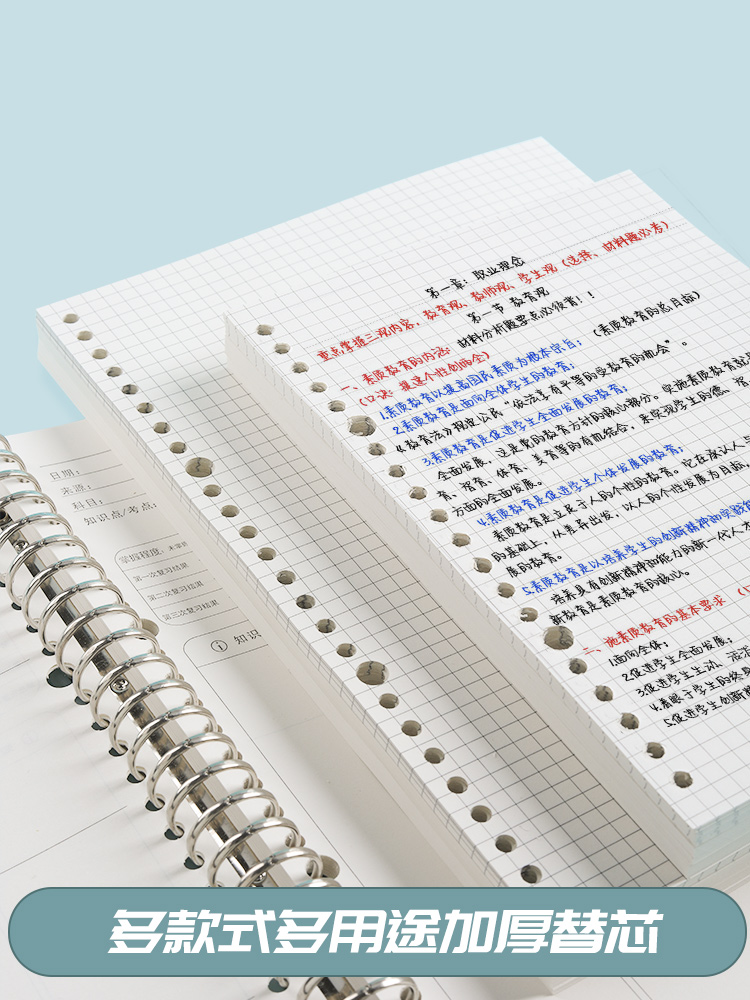 第一章：职业理念
重点掌握三观内容，教育观、教师观、学生观（选择、材料题必考）
第一节 教育观
材料分析题要点必须背！！
一、素质教育的内涵：
（素质教育的总目标）
（口诀：提运个性创两全）
1.素质教育以提高国民素质为根本宗旨；
2.素质教育是面向全体学生的教育；
《教育法》规定公民“依法享有平等的受教育的机会”。
3.素质教育是促进学生全面发展的教育；
全面发展，这是党的教育方针的核心部分。实施素质教育就
育、智育、体育、美育等的有机结合，来实现学生的德、
方面的全面发展。
4.素质教育是促进学生个体发展的教育；
素质教育是立足于人的个性的教育。它在承认人
的基础上，从差异出发，以人的个性发展为目标
展的教育。
5.素质教育是以培养学生的创新精神和实践能
培养具有创新精神和能力的新一代人才
新教育是素质教育的核心。
二、施素质教育的基本要求（口
1.面向全体；
2.促进学生全面发展；
3.促进学生生动、活泼
4.着眼于学生的终身
5.促进学生创新精
日期：
来源：
科目：
知识点/考点：
掌握程度：未掌握
第一次复习结果
第二次复习结果
第三次复习结果
知识
多款式多用途加厚替芯